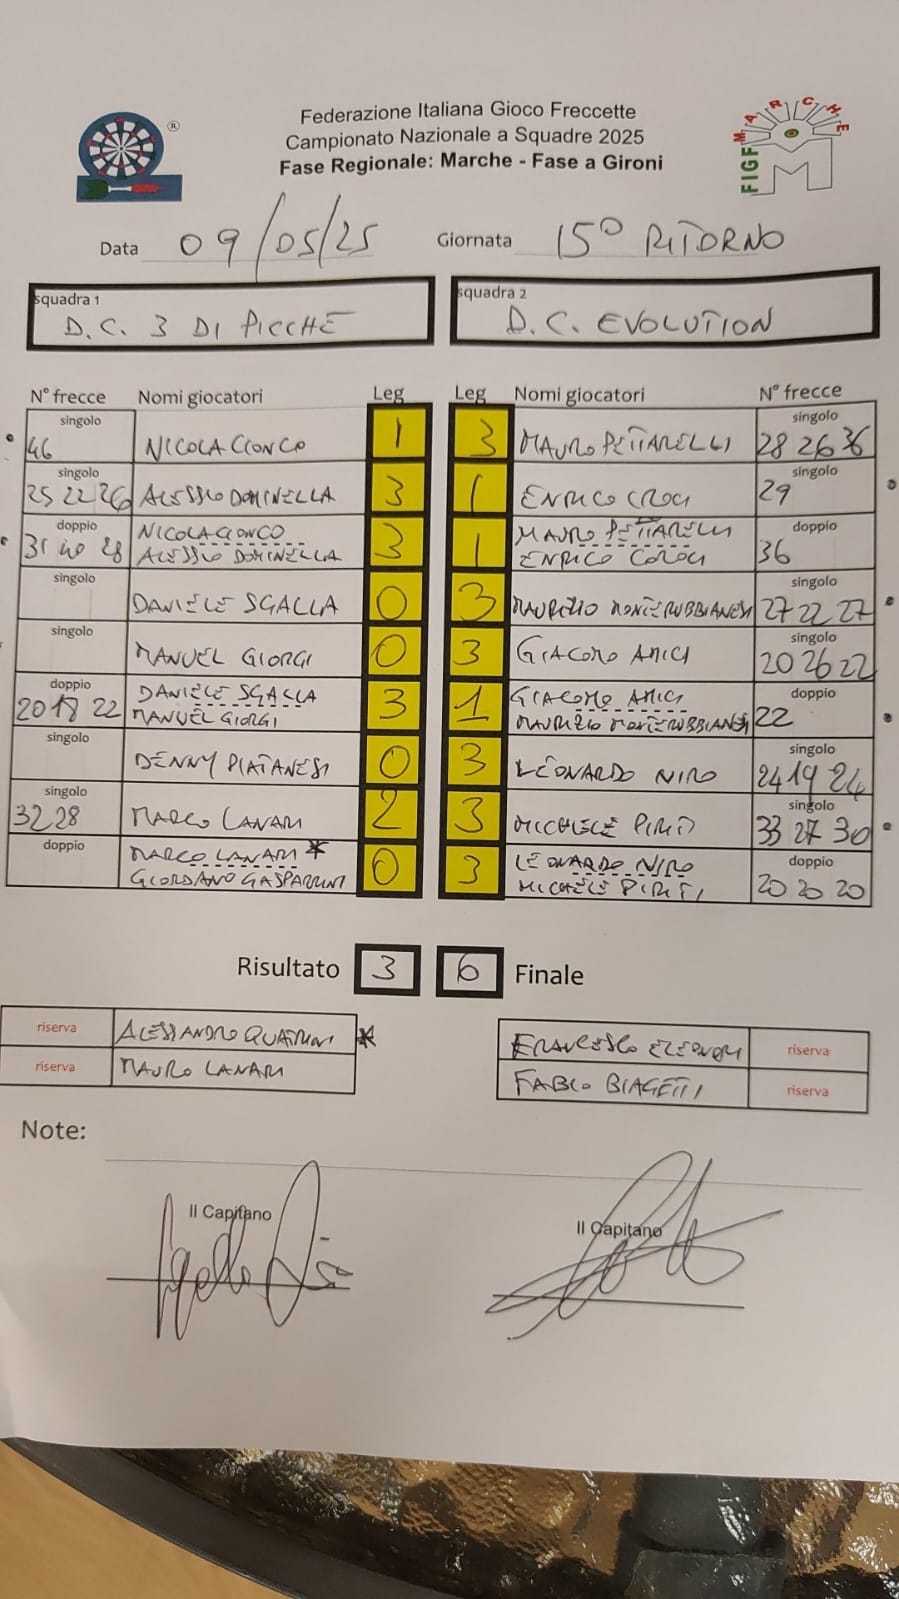 Federazione Italiana Gioco Freccette
Campionato Nazionale a Squadre 2025
Fase Regionale: Marche - Fase a Gironi
®
FIGF MARCHE
Data 09/05/25 Giornata 15° RITORNO
squadra 1 squadra 2
D.C. 3 DI PICCHE D.C. EVOLUTION
N° frecce Nomi giocatori Leg Leg Nomi giocatori N° frecce
singolo singolo
46 NICOLA CIONCO 1 3 MAURO PETTARELLI 28 26 36
singolo singolo
25 22 26 ALESSIO DOMINELLA 3 1 ENRICO CROCI 29
doppio NICOLA CIONCO MAURO PETTARELLI doppio
31 40 28 ALESSIO DOMINELLA 3 1 ENRICO CROCI 36
singolo singolo
DANIELE SGALLA 0 3 MAURIZIO MONTERUBBIANESI 27 22 27
singolo singolo
MANUEL GIORGI 0 3 GIACOMO AMICI 20 26 22
doppio DANIELE SGALLA GIACOMO AMICI doppio
20 18 22 MANUEL GIORGI 3 1 MAURIZIO MONTERUBBIANESI 22
singolo singolo
DENNY PIATANESI 0 3 LEONARDO NIRO 24 19 24
singolo singolo
32 28 MARCO LANARI 2 3 MICHELE PIRITI 33 27 30
doppio MARCO LANARI * LEONARDO NIRO doppio
GIORDANO GASPARRINI 0 3 MICHELE PIRITI 20 20 20
Risultato 3 6 Finale
riserva ALESSANDRO QUATRINI * FRANCESCO ELEONORI riserva
riserva MAURO LANARI FABIO BIAGETTI riserva
Note:
Il Capitano Il Capitano